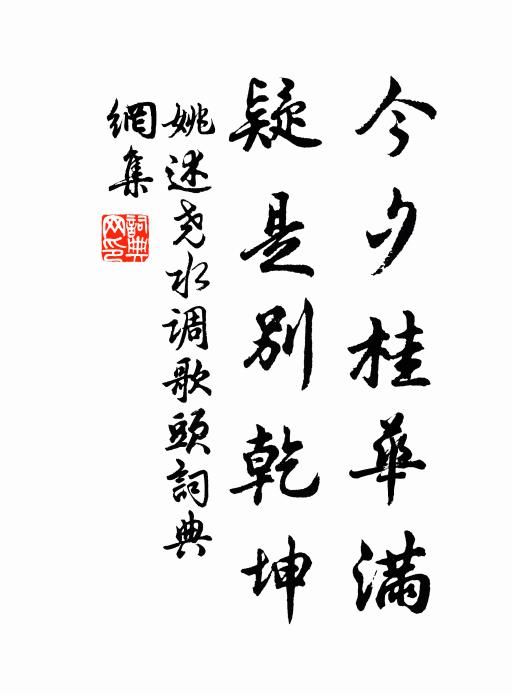 今夕桂華满
疑是别乾坤
姚述尧水调歌頭詞典
網集
詞典
网印